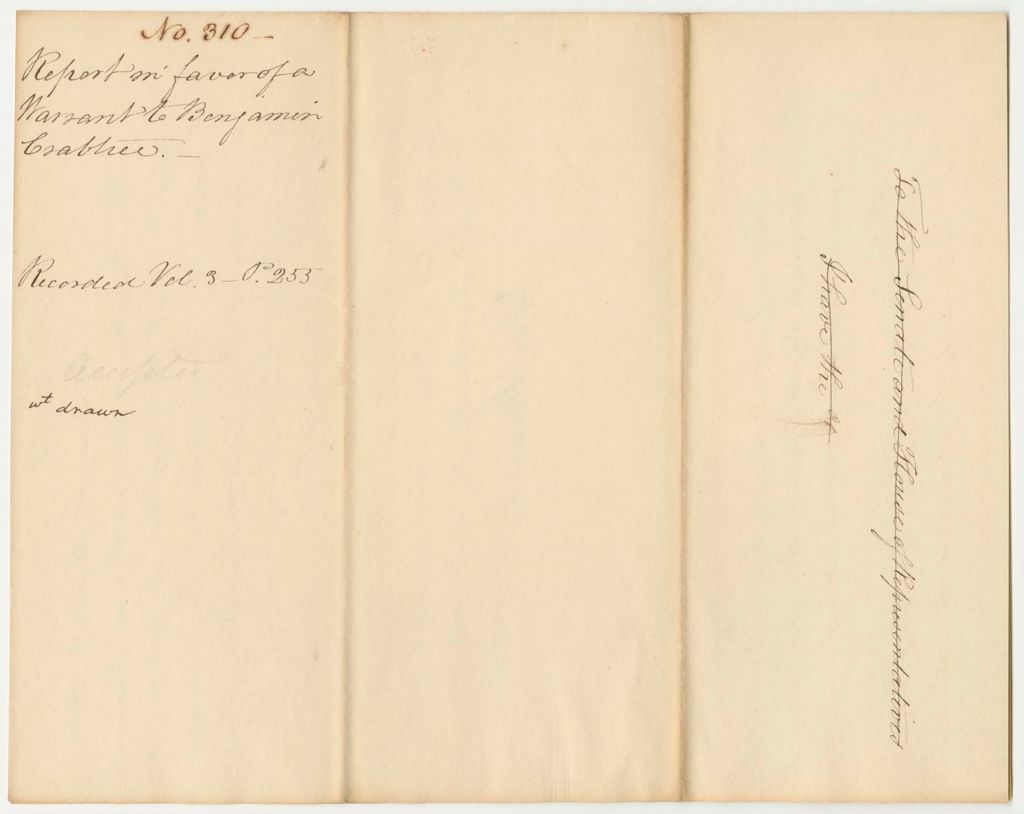 No. 310 –
Report in favor of a
Warrant to Benjamin
Crabtree. –
Recorded Vol. 3 – P. 255
Accepted
wt drawn
To the Senate and House of Representatives
I have the